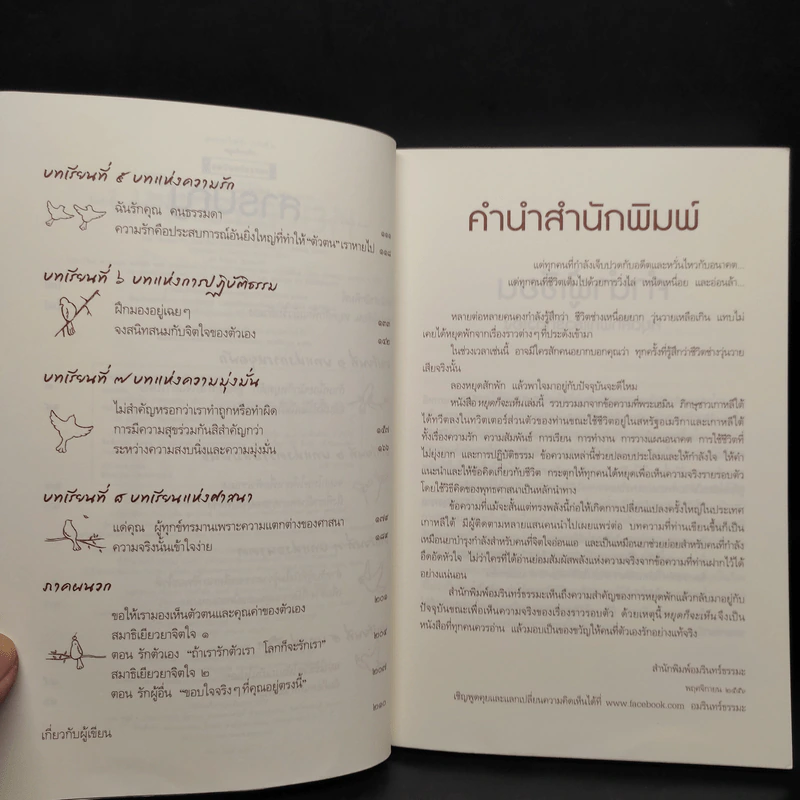 บทเรียนที่ ๕ บทแห่งความรัก
ฉันรักคุณ คนธรรมดา ๑๑๑
ความรักคือประสบการณ์อันยิ่งใหญ่ที่ทำให้ “ตัวตน” เราหายไป ๑๑๘
บทเรียนที่ ๖ บทแห่งการปฏิบัติธรรม
ฝึกมองอยู่เฉยๆ ๑๓๓
จงสนิทสนมกับจิตใจของตัวเอง ๑๔๒
บทเรียนที่ ๗ บทแห่งความมุ่งมั่น
ไม่สำคัญหรอกว่าเราทำถูกหรือทำผิด
การมีความสุขร่วมกันสิสำคัญกว่า ๑๕๗
ระหว่างความสงบนิ่งและความมุ่งมั่น ๑๖๖
บทเรียนที่ ๘ บทเรียนแห่งศาสนา
แด่คุณ ผู้ทุกข์ทรมานเพราะความแตกต่างของศาสนา ๑๗๕
ความจริงนั้นเข้าใจง่าย ๑๘๔
ภาคผนวก
ขอให้เรามองเห็นตัวตนและคุณค่าของตัวเอง ๒๐๑
สมาธิเยียวยาจิตใจ ๑
ตอน รักตัวเอง “ถ้าเรารักตัวเรา โลกก็จะรักเรา” ๒๐๔
สมาธิเยียวยาจิตใจ ๒
ตอน รักผู้อื่น “ขอบใจจริงๆ ที่คุณอยู่ตรงนี้” ๒๐๗
เกี่ยวกับผู้เขียน ๒๑๐
คำนำสำนักพิมพ์
แด่ทุกคนที่กำลังเจ็บปวดกับอดีตและหวั่นไหวกับอนาคต...
แด่ทุกคนที่ชีวิตเต็มไปด้วยการวิ่งไล่ เหน็ดเหนื่อย และอ่อนล้า...
หลายต่อหลายคนคงกำลังรู้สึกว่า ชีวิตช่างเหนื่อยยาก วุ่นวายเหลือเกิน แทบไม่
เคยได้หยุดพักจากเรื่องราวต่างๆ ที่ประดังเข้ามา
ในช่วงเวลาเช่นนี้ อาจมีใครสักคนอยากบอกคุณว่า ทุกครั้งที่รู้สึกว่าชีวิตช่างวุ่นวาย
เสียจริงนั้น
ลองหยุดสักพัก แล้วพาใจมาอยู่กับปัจจุบันจะดีไหม
หนังสือ หยุดก็จะเห็น เล่มนี้ รวบรวมมาจากข้อความที่พระเฮมิน ภิกษุชาวเกาหลีใต้
ได้ทวีตลงในทวิตเตอร์ส่วนตัวของท่านขณะใช้ชีวิตอยู่ในสหรัฐอเมริกาและเกาหลีใต้
ทั้งเรื่องความรัก ความสัมพันธ์ การเรียน การทำงาน การวางแผนอนาคต การใช้ชีวิตที่
ไม่ยุ่งยาก และการปฏิบัติธรรม ข้อความเหล่านี้ช่วยปลอบประโลมและให้กำลังใจ ให้คำ
แนะนำและให้ข้อคิดเกี่ยวกับชีวิต กระตุกให้ทุกคนได้หยุดเพื่อเห็นความจริงรายรอบตัว
โดยใช้วิธีคิดของพุทธศาสนาเป็นหลักนำทาง
ข้อความที่แม้จะสั้นแต่ทรงพลังนี้ก่อให้เกิดการเปลี่ยนแปลงครั้งใหญ่ในประเทศ
เกาหลีใต้ มีผู้ติดตามหลายแสนคนนำไปเผยแพร่ต่อ บทความที่ท่านเขียนขึ้นก็เป็น
เหมือนยาบำรุงกำลังสำหรับคนที่จิตใจอ่อนแอ และเป็นเหมือนยาช่วยย่อยสำหรับคนที่กำลัง
อึดอัดหัวใจ ไม่ว่าใครที่ได้อ่านย่อมสัมผัสพลังแห่งความจริงจากข้อความที่ท่านฝากไว้ได้
อย่างแน่นอน
สำนักพิมพ์อมรินทร์ธรรมะเห็นถึงความสำคัญของการหยุดพักแล้วกลับมาอยู่กับ
ปัจจุบันขณะเพื่อเห็นความจริงของเรื่องราวรอบตัว ด้วยเหตุนี้ หยุดก็จะเห็น จึงเป็น
หนังสือที่ทุกคนควรอ่าน แล้วมอบเป็นของขวัญให้คนที่ตัวเองรักอย่างแท้จริง
สำนักพิมพ์อมรินทร์ธรรมะ
พฤศจิกายน ๒๕๕๖
เชิญพูดคุยและแลกเปลี่ยนความคิดเห็นได้ที่ www.facebook.com อมรินทร์ธรรมะ